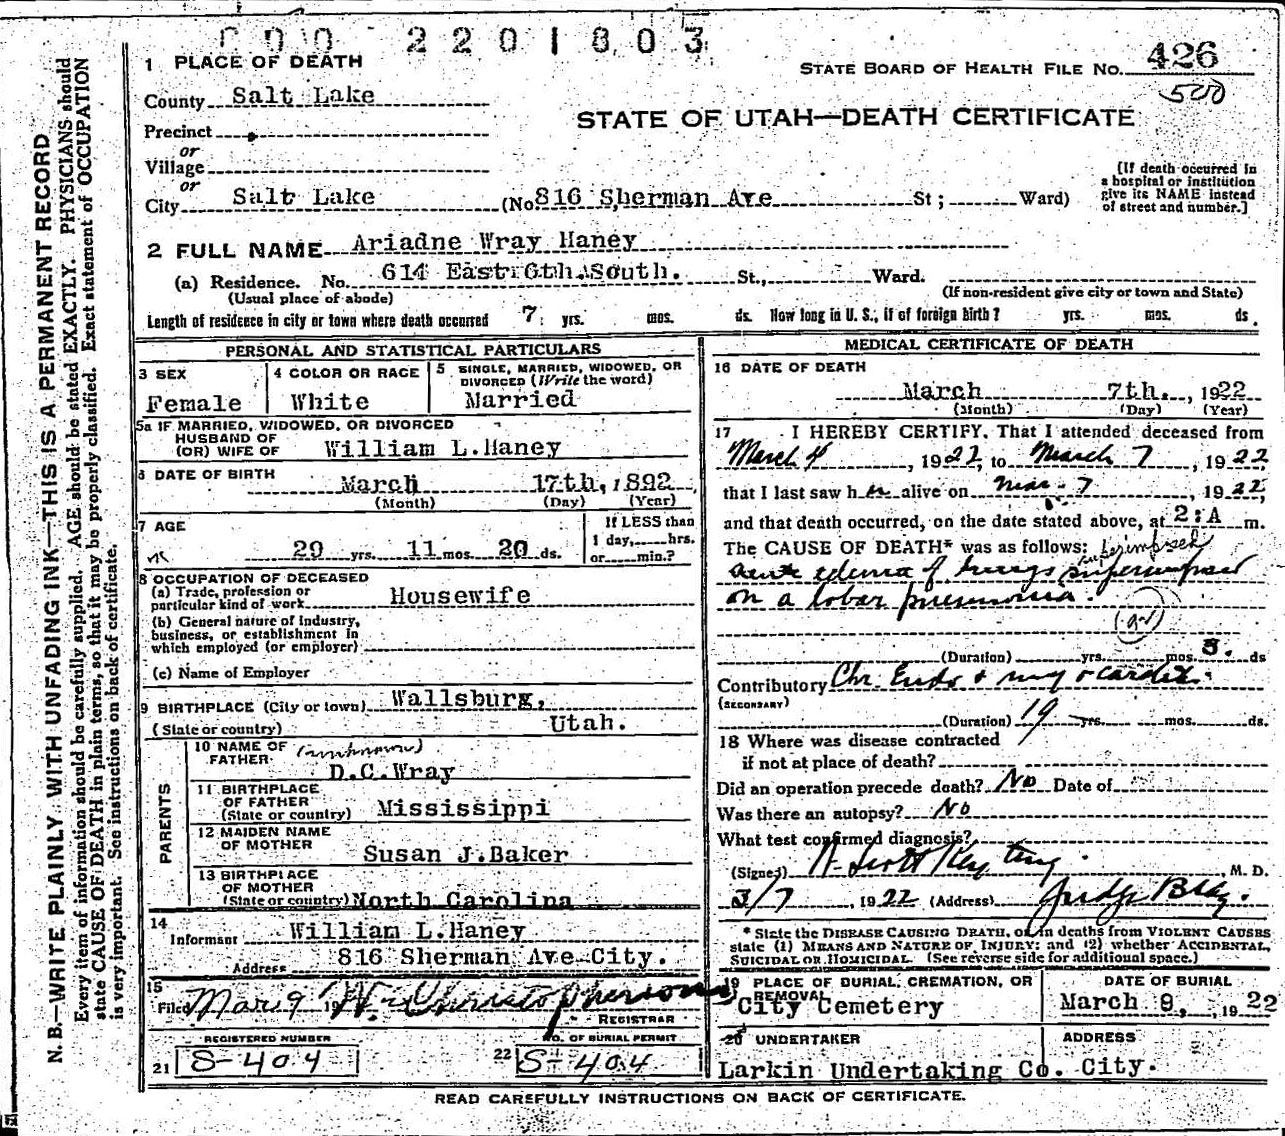 2201803
1 PLACE OF DEATH
STATE BOARD OF HEALTH FILE No. 426
500
County Salt Lake
STATE OF UTAH—DEATH CERTIFICATE
Precinct
or
Village
or
City Salt Lake (No 816 Sherman Ave St; Ward)
[If death occurred in
a hospital or institution
give its NAME instead
of street and number.]
2 FULL NAME Ariadne Wray Haney
(a) Residence. No. 614 East 6th South. St., Ward.
(Usual place of abode) (If non-resident give city or town and State)
Length of residence in city or town where death occurred 7 yrs. mos. ds. How long in U. S., if of foreign birth? yrs. mos. ds.
PERSONAL AND STATISTICAL PARTICULARS
3 SEX
Female
4 COLOR OR RACE
White
5 SINGLE, MARRIED, WIDOWED, OR
DIVORCED (Write the word)
Married
5a IF MARRIED, WIDOWED, OR DIVORCED
HUSBAND OF
(OR) WIFE OF William L. Haney
6 DATE OF BIRTH
March 17th, 1892
(Month) (Day) (Year)
7 AGE
29 yrs. 11 mos. 20 ds.
If LESS than
1 day, hrs.
or min.?
8 OCCUPATION OF DECEASED
(a) Trade, profession or
particular kind of work Housewife
(b) General nature of Industry,
business, or establishment in
which employed (or employer)
(c) Name of Employer
9 BIRTHPLACE (City or town) Wallsburg,
(State or country) Utah.
PARENTS
10 NAME OF
FATHER (unknown)
D.C. Wray
11 BIRTHPLACE
OF FATHER
(State or country) Mississippi
12 MAIDEN NAME
OF MOTHER
Susan J. Baker
13 BIRTHPLACE
OF MOTHER
(State or country) North Carolina
14
Informant William L. Haney
Address 816 Sherman Ave City.
15
Filed Mar 9 19 Wm Christopherson
REGISTRAR
REGISTERED NUMBER
21 S-404
NO. OF BURIAL PERMIT
22 S-404
MEDICAL CERTIFICATE OF DEATH
16 DATE OF DEATH
March 7th., 1922
(Month) (Day) (Year)
17 I HEREBY CERTIFY, That I attended deceased from
March 4, 1922, to March 7, 1922
that I last saw her alive on Mar. 7, 1922,
and that death occurred, on the date stated above, at 2:A m.
The CAUSE OF DEATH* was as follows: superimposed
acute edema of lungs superimposed
on a lobar pneumonia.
(Duration) yrs. mos. 3. ds
Contributory Chr. Endo & myocarditis
(SECONDARY)
(Duration) 19 yrs. mos. ds.
18 Where was disease contracted
if not at place of death?
Did an operation precede death? No Date of
Was there an autopsy? No
What test confirmed diagnosis?
(Signed) H. Scott Keyting, M. D.
3/7, 1922 (Address) Judge Bldg.
* State the DISEASE CAUSING DEATH, or in deaths from VIOLENT CAUSES
state (1) MEANS AND NATURE OF INJURY; and (2) whether ACCIDENTAL,
SUICIDAL OR HOMICIDAL. (See reverse side for additional space.)
19 PLACE OF BURIAL, CREMATION, OR
REMOVAL
City Cemetery
DATE OF BURIAL
March 9, 1922
20 UNDERTAKER
Larkin Undertaking Co.
ADDRESS
City.
READ CAREFULLY INSTRUCTIONS ON BACK OF CERTIFICATE.
N. B.—WRITE PLAINLY, WITH UNFADING INK—THIS IS A PERMANENT RECORD
Every item of information should be carefully supplied. AGE should be stated EXACTLY. PHYSICIANS should
state CAUSE OF DEATH in plain terms, so that it may be properly classified. Exact statement of OCCUPATION
is very important. See instructions on back of certificate.